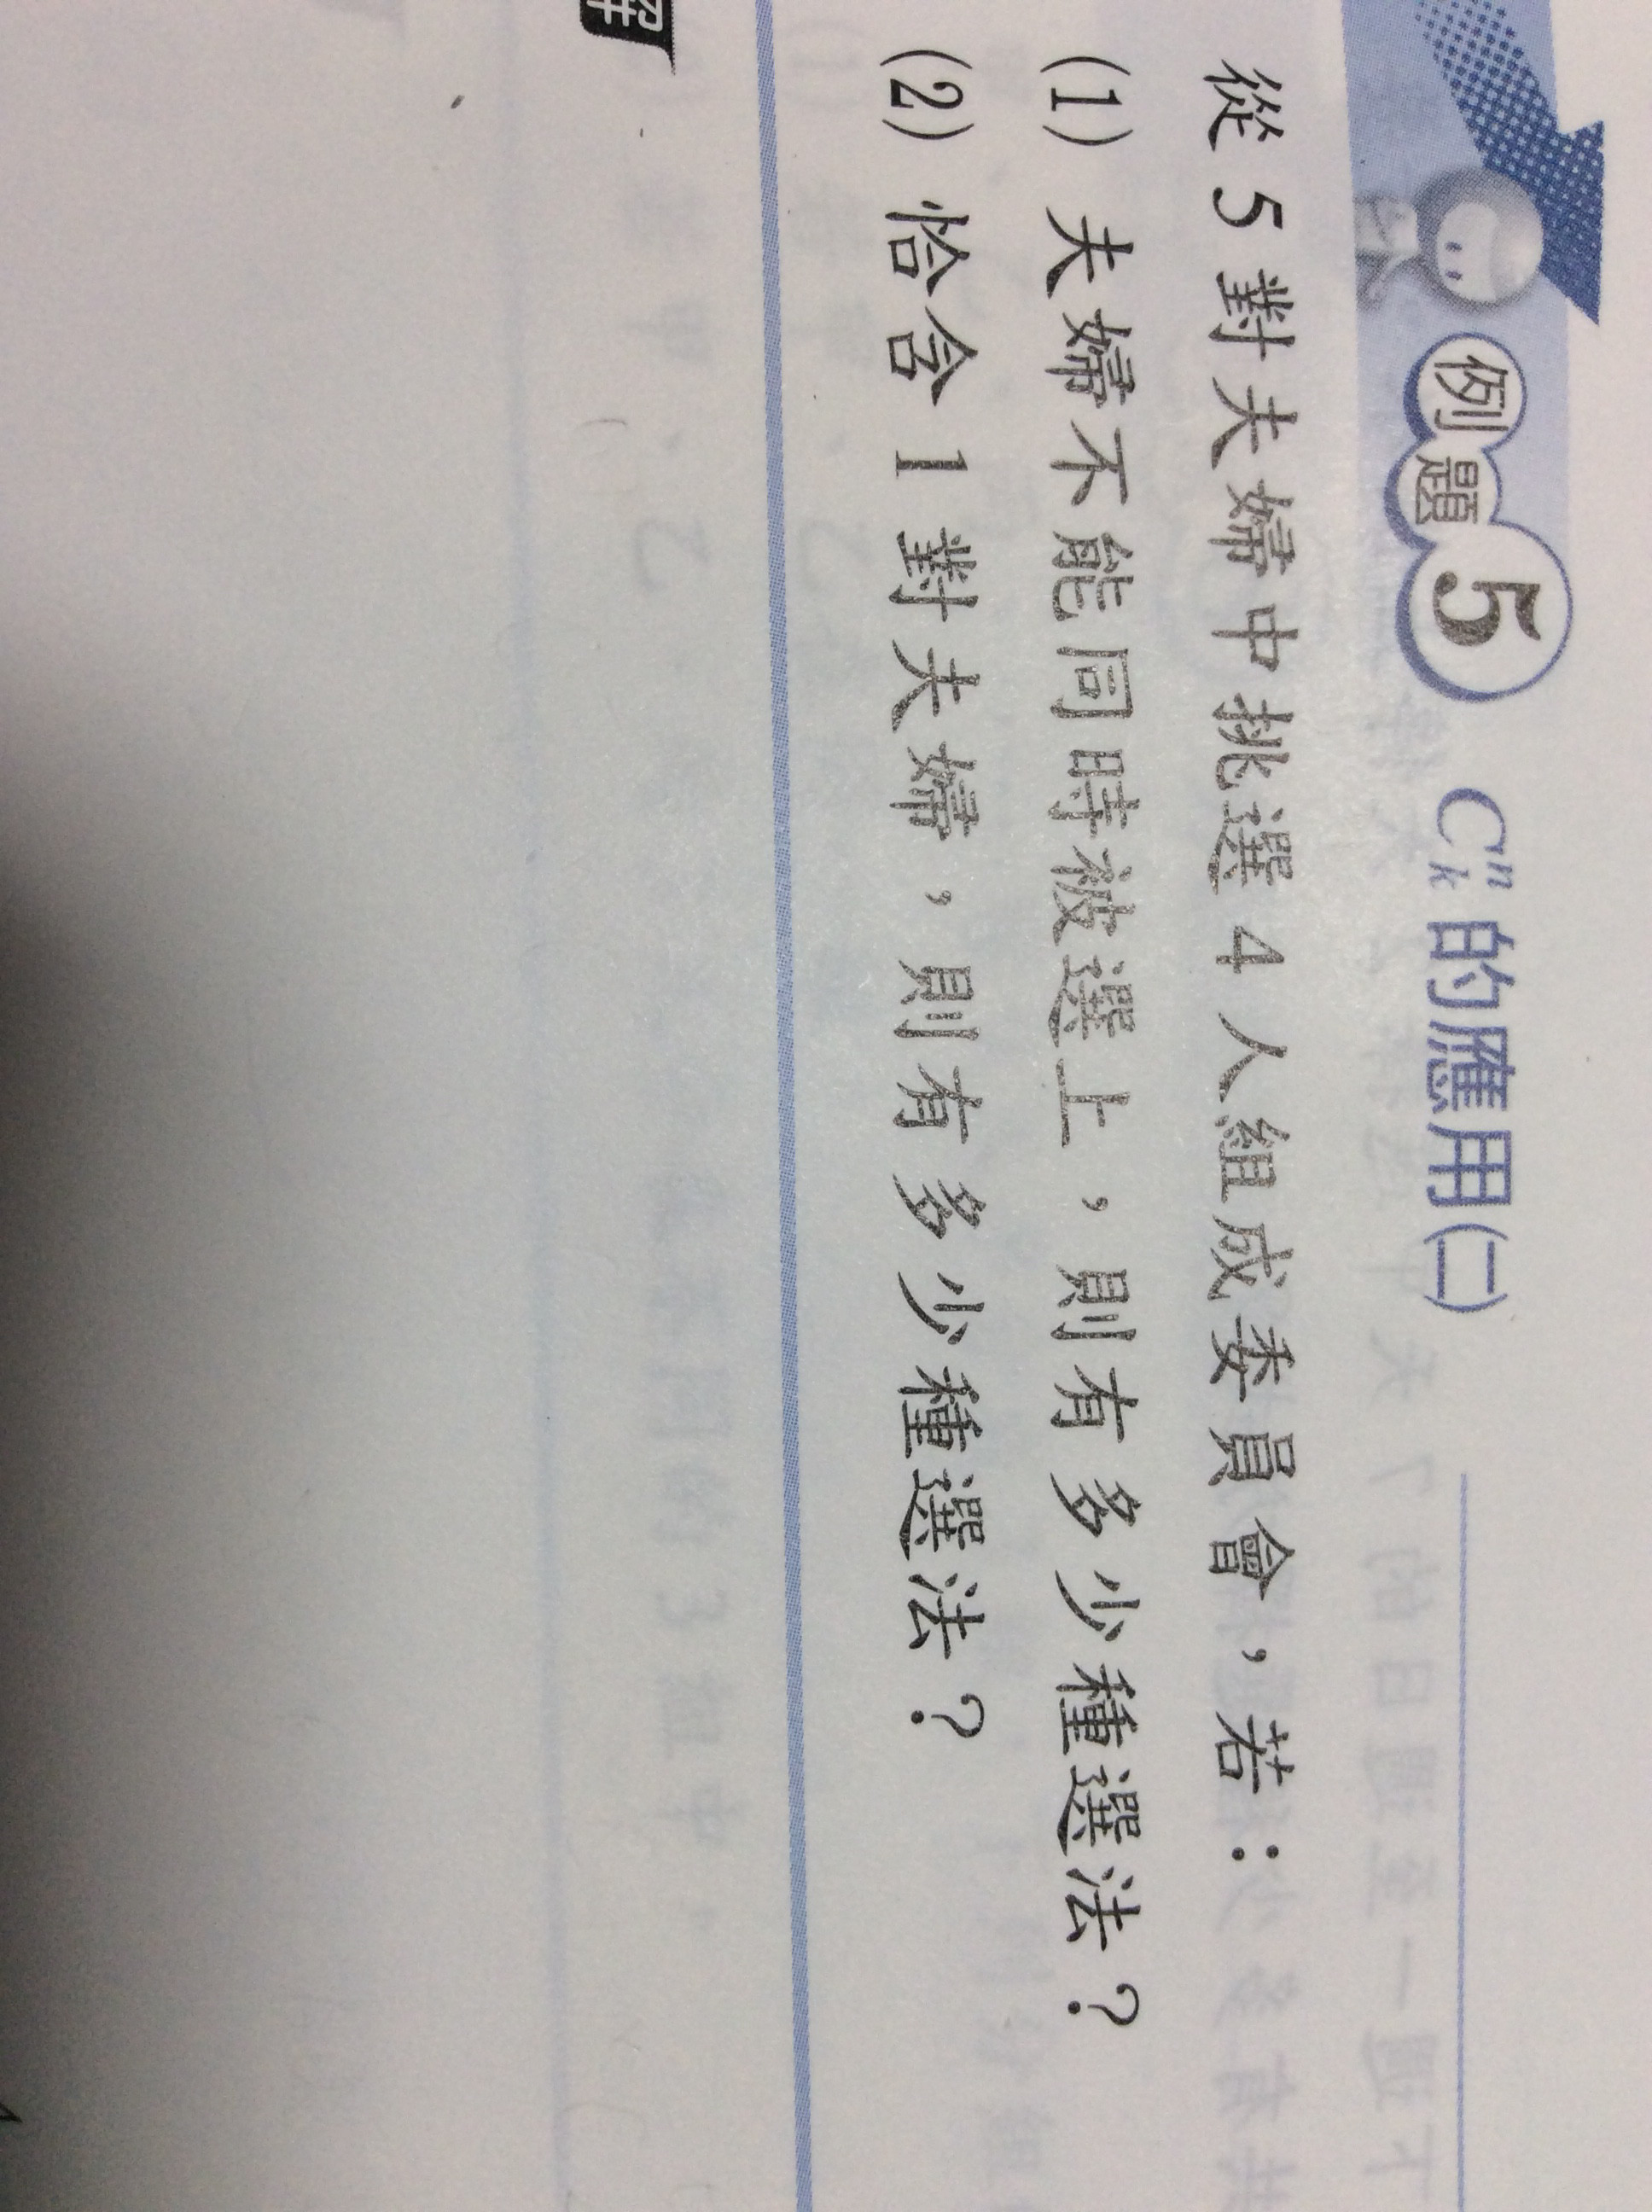 例題5 Cⁿₖ的應用(二)
從5對夫婦中挑選4人組成委員會，若：
(1) 夫婦不能同時被選上，則有多少種選法？
(2) 恰含1對夫婦，則有多少種選法？
解